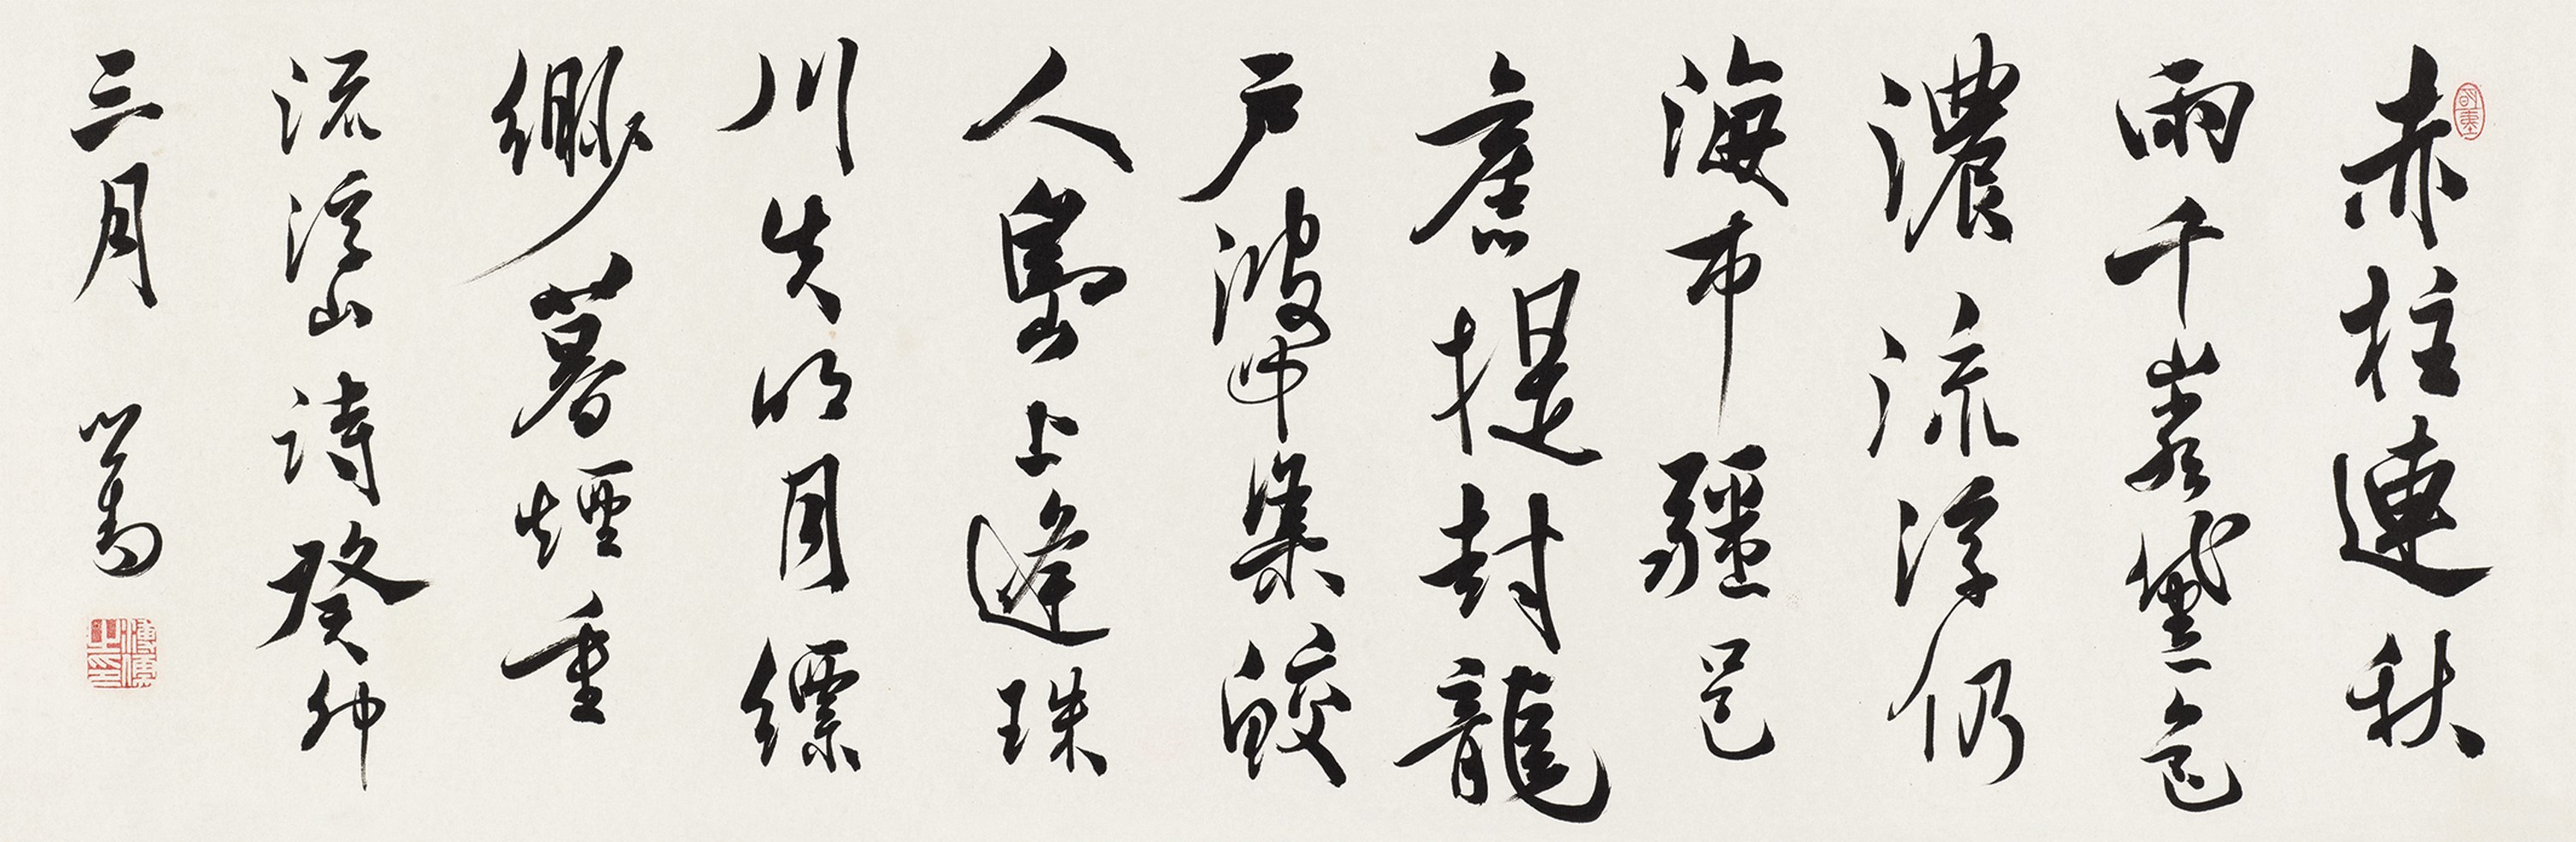 赤柱連秋
雨千岩黛色
濃流浮仍
海市疆邑
舊提封龍
戶波中集鮫
人島上逢珠
川失明月縹
緲暮煙重
流浮山詩癸卯
三月 心畬